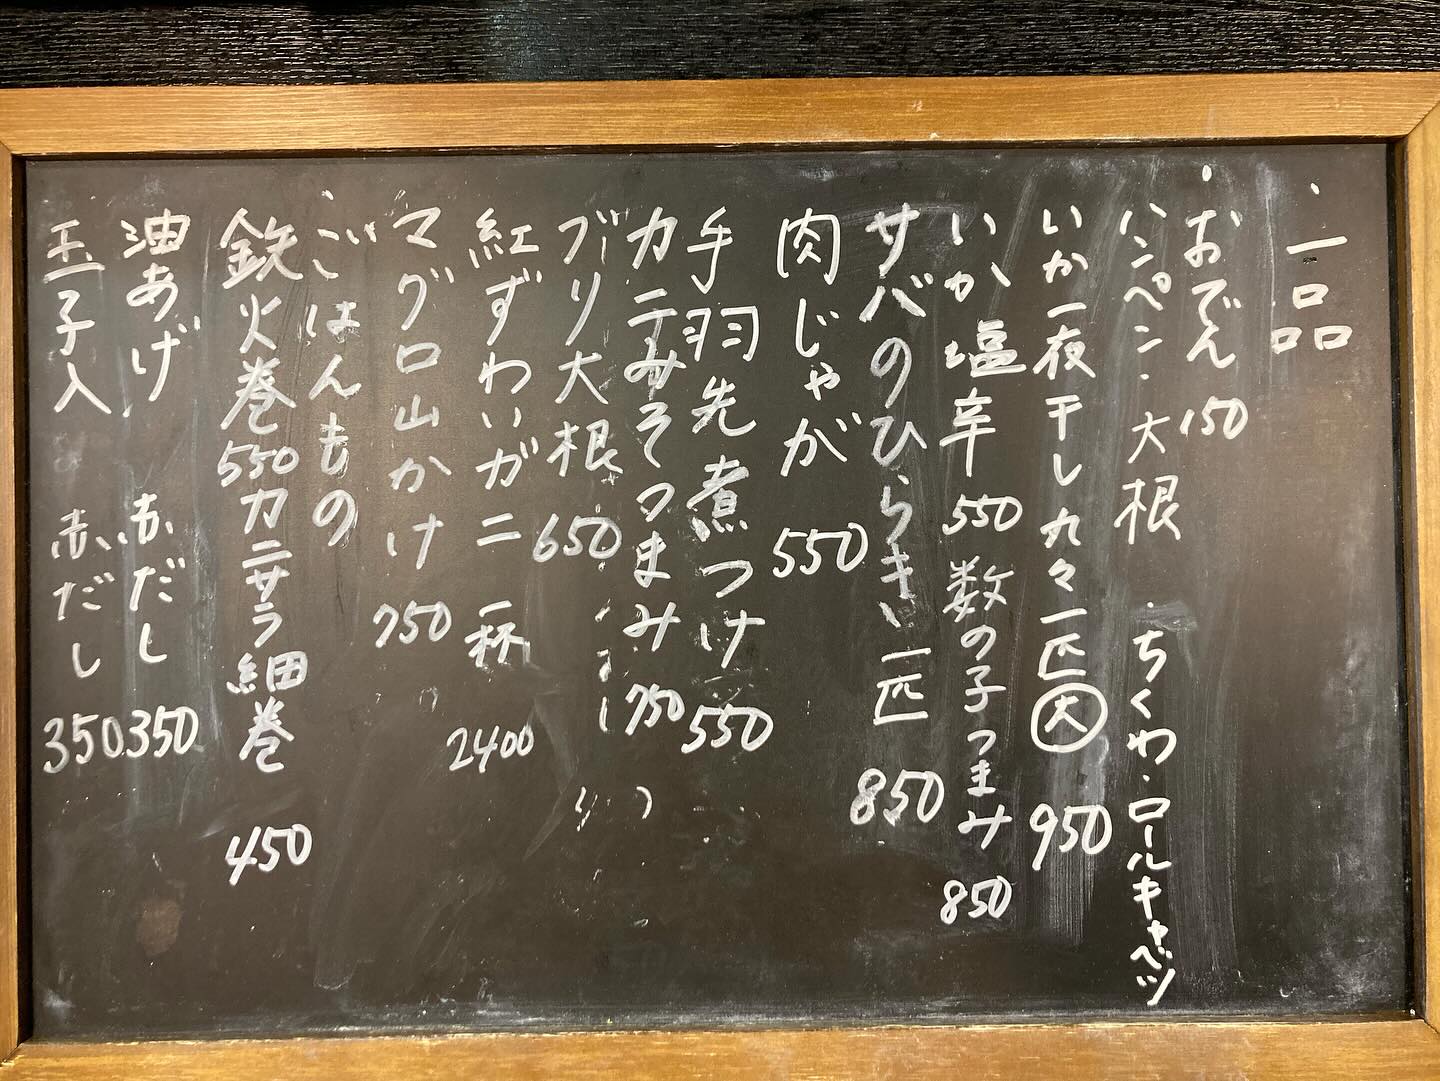 ・一品
・おでん 150
ハンペン・大根・ちくわ・ロールキャベツ
いか一夜干し丸々一匹大 950
いか塩辛 550 数の子つまみ 850
サバのひらき 一匹 850
肉じゃが 550
手羽先煮つけ 550
カニみそつまみ 750
ブリ大根 650
紅ずわいガニ 一杯 2400
マグロ山かけ 750
ごはんもの
鉄火巻 550 カニサラ細巻 450
油あげ 赤だし 350
玉子入 赤だし 350